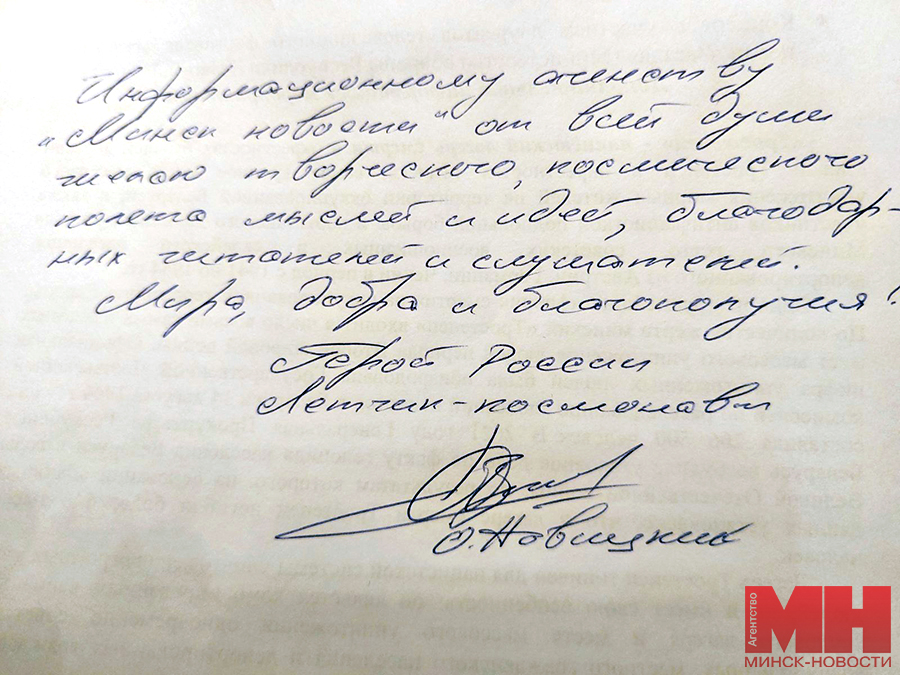 Информационному агенству
„Минск новости" от всей души
желаю творческого, космического
полета мыслей и идей, благодар-
ных читателей и слушателей.
Мира, добра и благополучия!
Герой России
Летчик-космонавт
О. Новицкий
Агентство
МН
МИНСК-НОВОСТИ